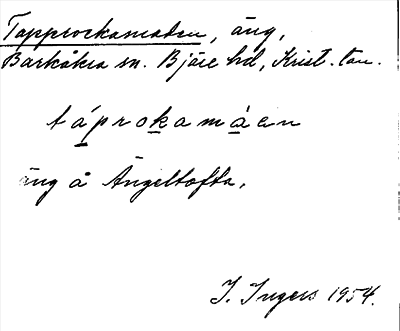 Tapprockamaden, äng,
Barkåkra sn. Bjäre hd, Krist. län.
táprokamáen
äng å Ängeltofta.
I. Ingers 1954.